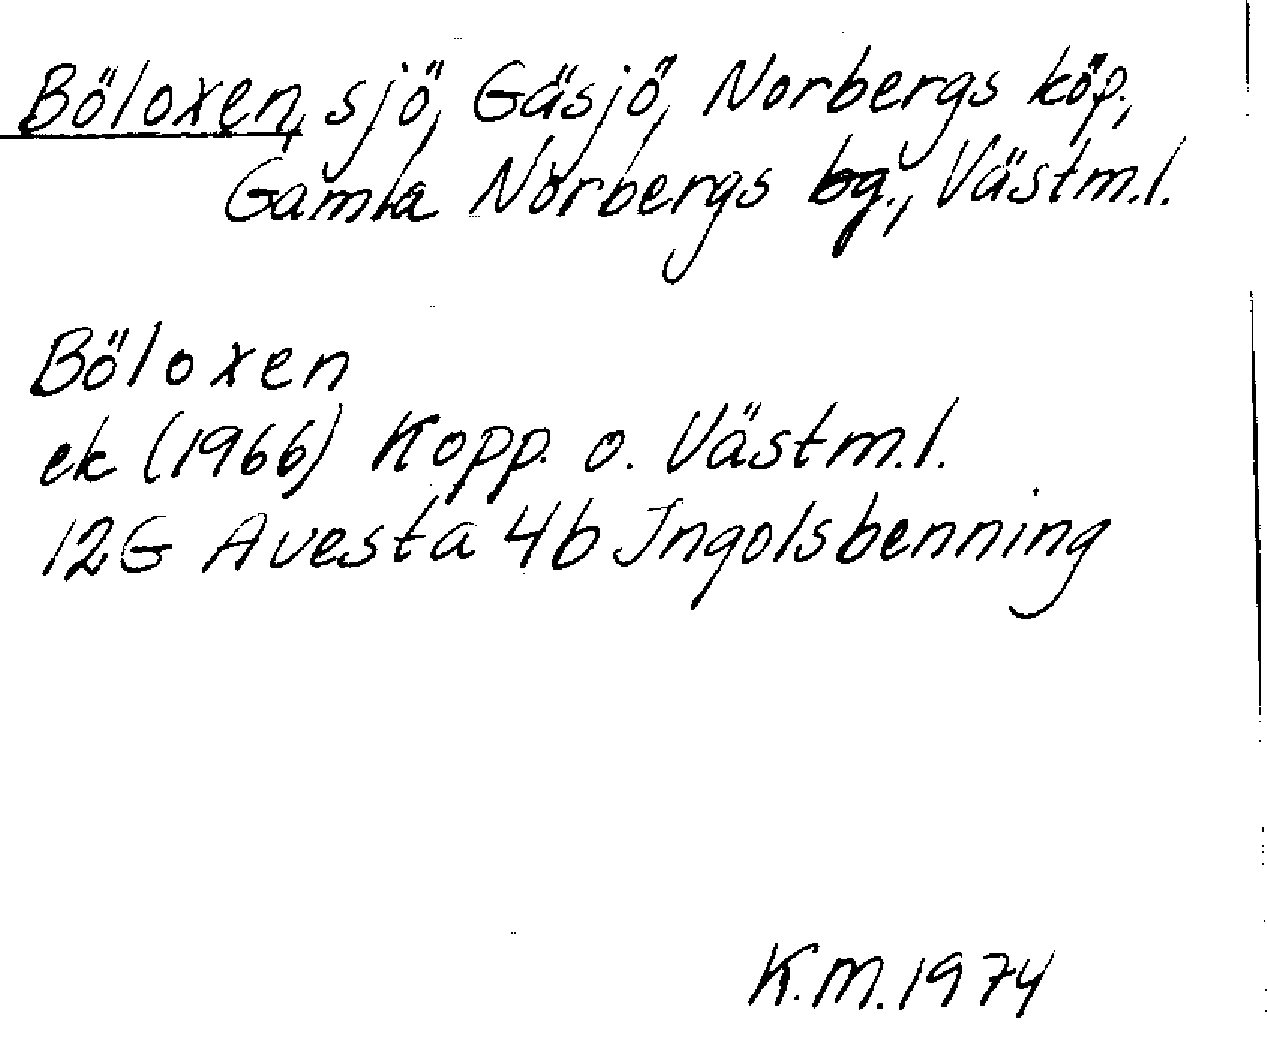 Böloxen, sjö, Gäsjö, Norbergs köp.,
Gamla Norbergs bg., Västm.l.
Böloxen
ek (1966) Kopp. o. Västm.l.
12G Avesta 4b Ingolsbenning
K.M. 1974